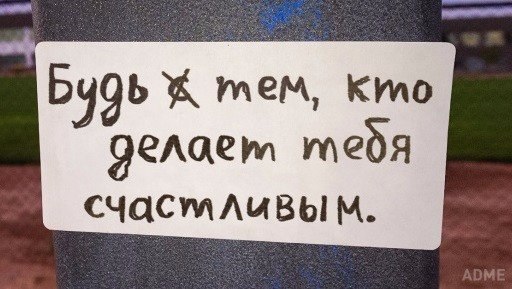 Будь с тем, кто
делает тебя
счастливым.
ADME